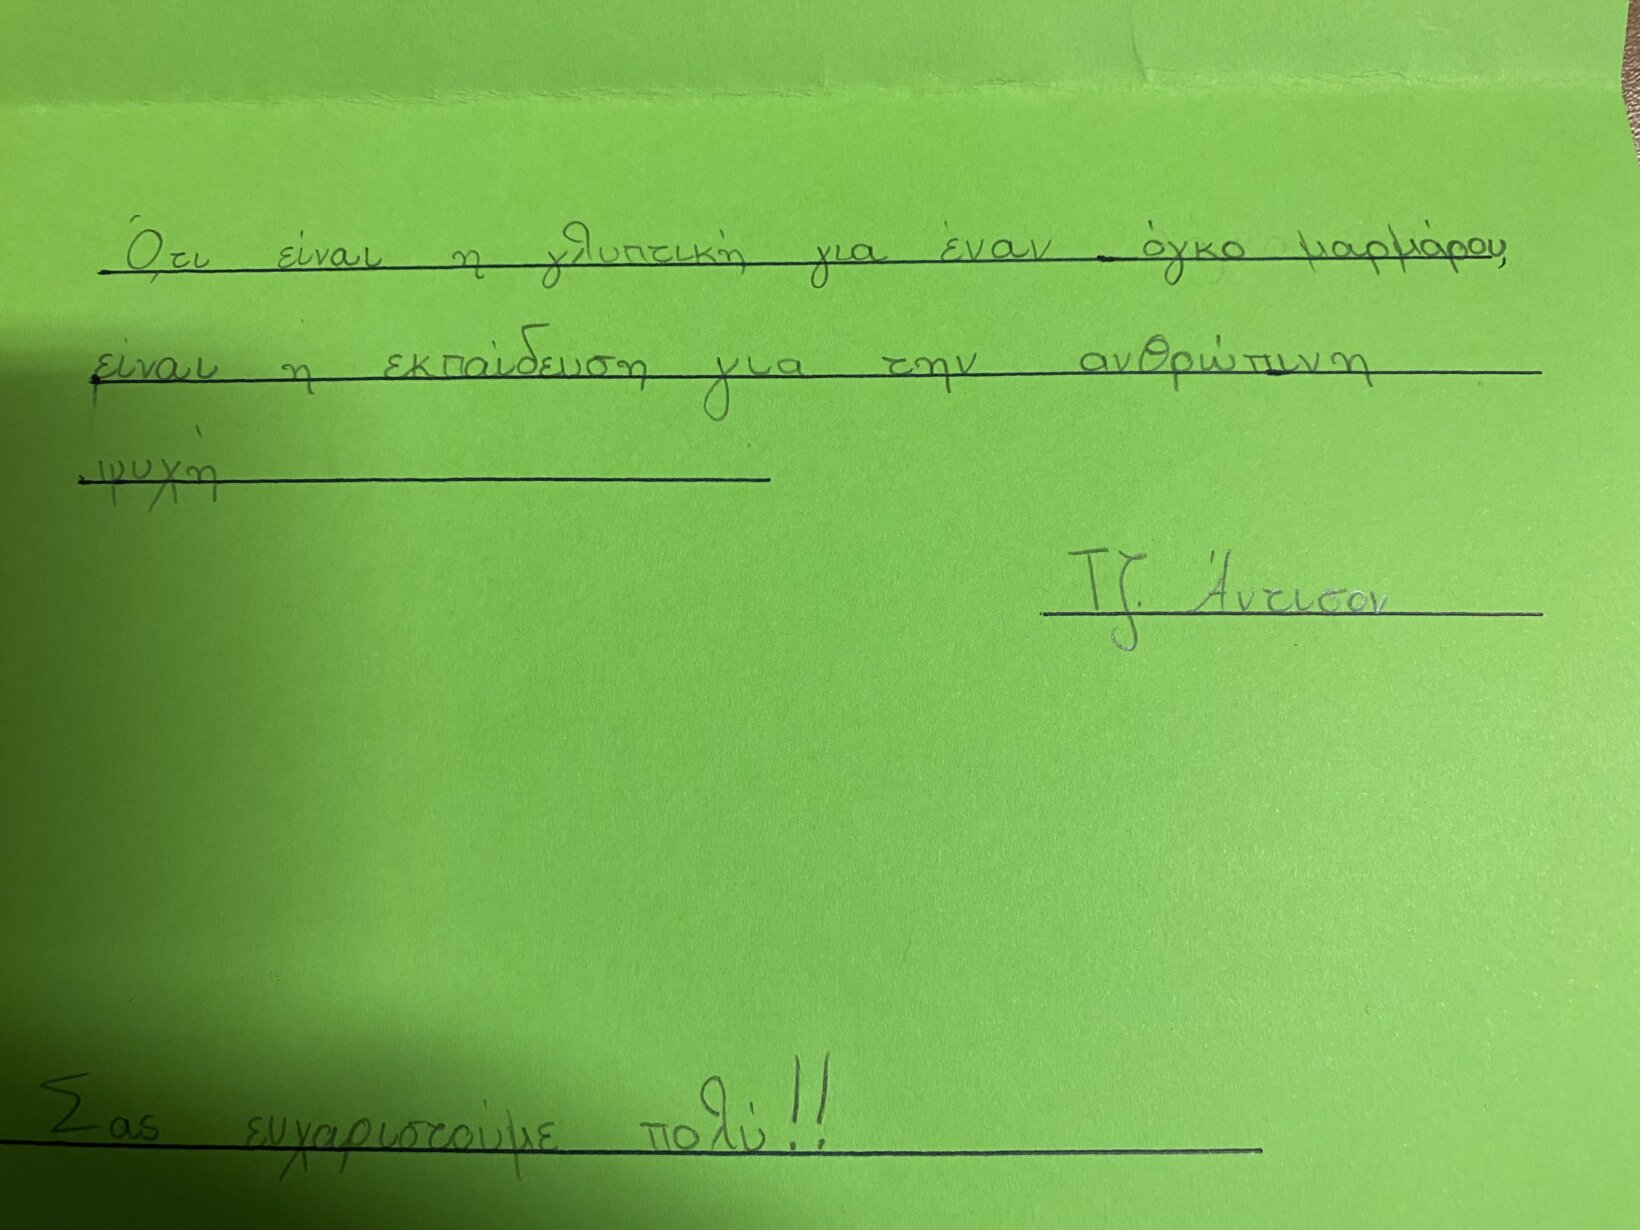 Ό,τι είναι η γλυπτική για έναν όγκο μαρμάρου,
είναι η εκπαίδευση για την ανθρώπινη
ψυχή
Τζ. Άντισον
Σας ευχαριστούμε πολύ!!